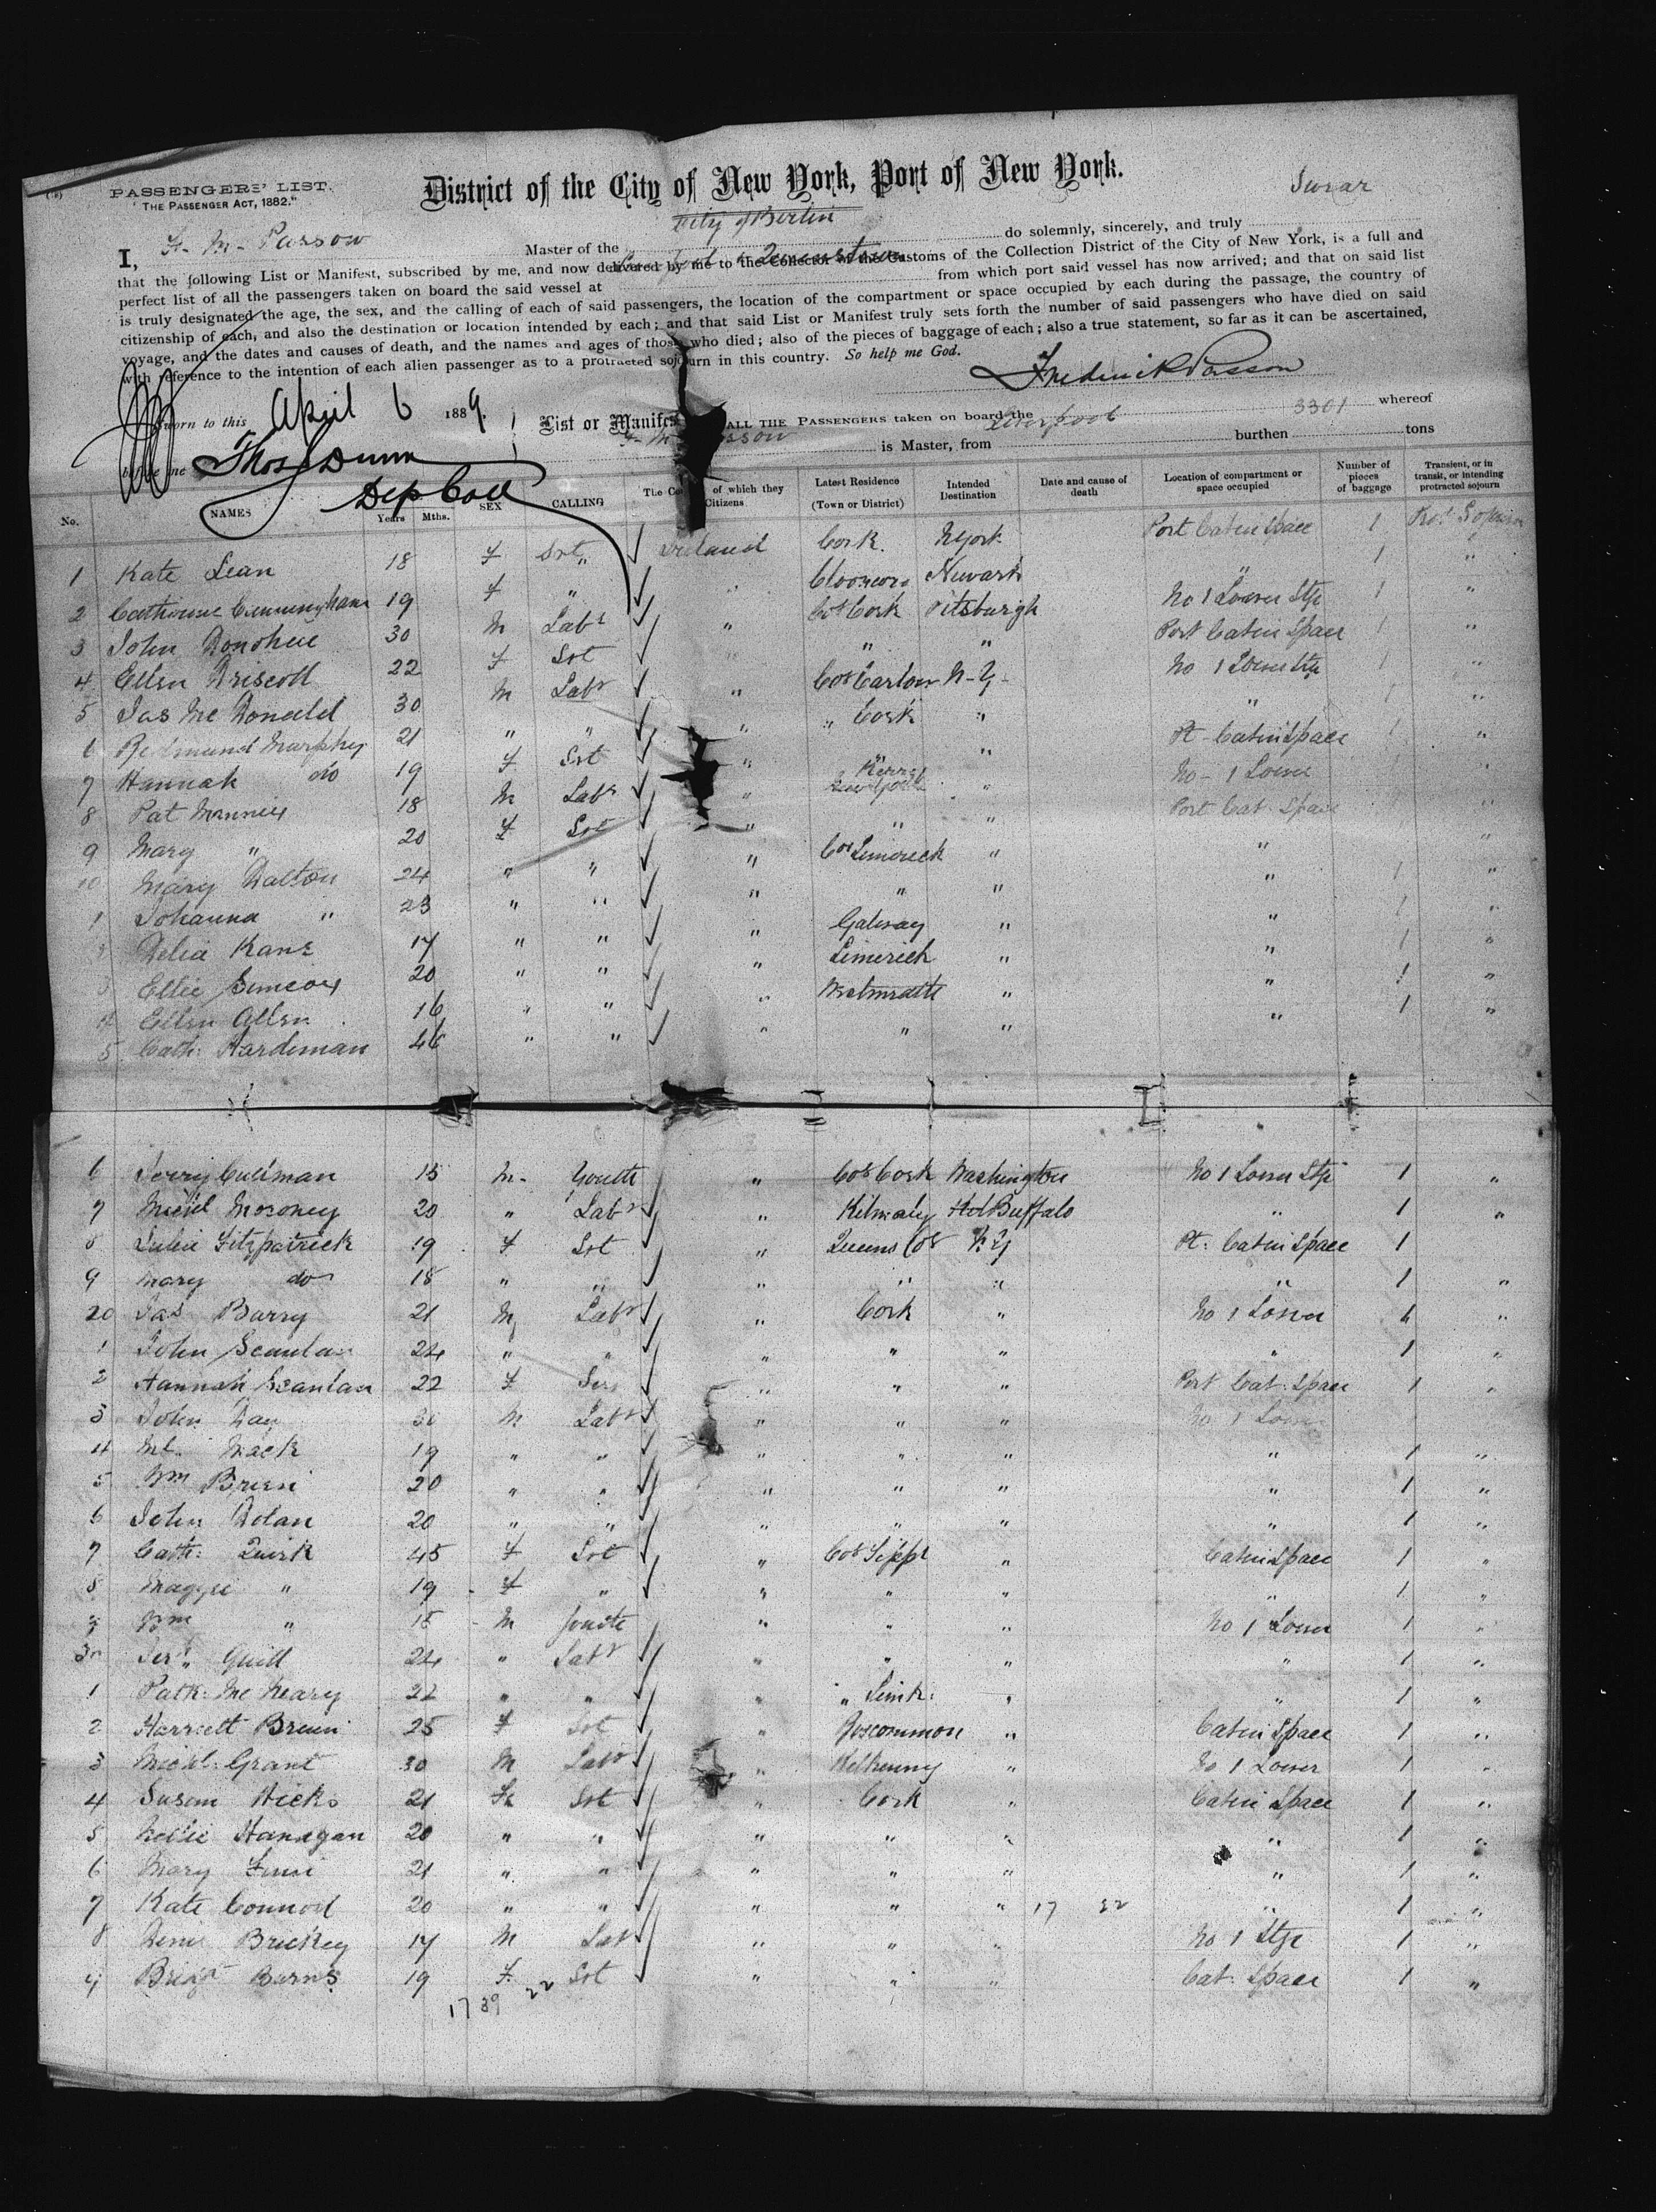 PASSENGERS' LIST.
"THE PASSENGER ACT, 1882."
District of the City of New York, Port of New York.
City of Berlin
I, F. M. Passow Master of the do solemnly, sincerely, and truly Swear
that the following List or Manifest, subscribed by me, and now delivered by me to the Collector of the Customs of the Collection District of the City of New York, is a full and
perfect list of all the passengers taken on board the said vessel at Queenstown from which port said vessel has now arrived; and that on said list
is truly designated the age, the sex, and the calling of each of said passengers, the location of the compartment or space occupied by each during the passage, the country of
citizenship of each, and also the destination or location intended by each; and that said List or Manifest truly sets forth the number of said passengers who have died on said
voyage, and the dates and causes of death, and the names and ages of those who died; also of the pieces of baggage of each; also a true statement, so far as it can be ascertained,
with reference to the intention of each alien passenger as to a protracted sojourn in this country. So help me God.
Frederick Passow
Sworn to this April 6 1889.
before me Thos Dunn
Dep Coll
List or Manifest ALL THE PASSENGERS taken on board the whereof
F. M. Passow is Master, from Liverpool burthen 3301 tons
No. NAMES Years Mths. SEX CALLING The of which they Citizens Latest Residence (Town or District) Intended Destination Date and cause of death Location of compartment or space occupied Number of pieces of baggage Transient, or in transit, or intending protracted sojourn
1 Kate Lean 18 F Svt Ireland Cork. N York Port Cabin Space 1
2 Catherine Cunningham 19 F " " Newark " 1 "
3 John Donohue 30 M Labr " Cor Cork Pitsburgh No 1 Lower Stge 1 "
4 Ellen Driscoll 22 F Svt " " " Port Cabin Space 1 "
5 Jas Mc Donald 30 M Labr " Cor Carlow N-Y- No 1 Lower Stge 1 "
6 Redmund Murphy 21 " " " " Cork " " 1 "
7 Hannah do 19 F Svt " " Pt- Cabin Space 1 "
8 Pat Mannix 18 M Labr " Kerry " No- 1 Lower "
9 Mary " 20 F Svt " " " Port Cab. Space "
10 Mary Dalton 24 " " " Cor Limerick " " "
1 Johanna " 23 " " " " " " 1 "
2 Delia Kane 17 " " " Galway " " 1 "
3 Ellie 20 " " " Limerick " " 1 "
4 Ellen Allen 16 " " " Westmeath " " 1 "
5 Cath: Hardiman 46 " " " " " " 1 "
6 Jerry Cullman 15 M. Youth " Cor Cork Washington No 1 Lower Stge 1 "
7 Michl Moroney 20 " Labr " Buffalo " 1 "
8 Julia Fitzpatrick 19 F Svt " Queens Cor N.Y Pt: Cabin Space 1
9 Mary do 18 " " " " " " 1 "
20 Jas Barry 21 M Labr " Cork " No 1 Lower 1 "
1 John Scanlan 24 " " " " " " 1 "
2 Hannah Scanlan 22 F Svt " " " Port Cab. Space 1 "
3 John Day M Labr " " " No 1 Lower
4 Ml. Mack 19 " " " " " " 1 "
5 Wm Brien 20 " " " " " " 1 "
6 John Dolan 20 " " " " " " 1 "
7 Cath: Quirk 45 F Svt " Cor Tippr " Cabin Space 1 "
8 Maggie " 19 F " " " " " 1 "
9 Wm " 15 M Youth " " " No 1 Lower 1 "
30 Jer. Quill 24 " Labr " " " " 1 "
1 Patk: Mc Neary 22 " " " " Limk: " " 1 "
2 Harriett Brien 25 F Svt " Roscommon " Cabin Space 1 "
3 Michl: Grant 30 M Labr " Kilkenny " No 1 Lower 1 "
4 Susan Hicks 21 F Svt " Cork " Cabin Space 1 "
5 Nellie Hannigan 20 " " " " " " 1 "
6 Mary 21 " " " " " " 1 "
7 Kate Connod 20 " " " " " 17 22 " 1 "
8 Denis Brickey 17 M Labr " " " No 1 Stge 1 "
9 Bridgt Burns 19 F. Svt " " " Cab: Space 1 "
17 39 22